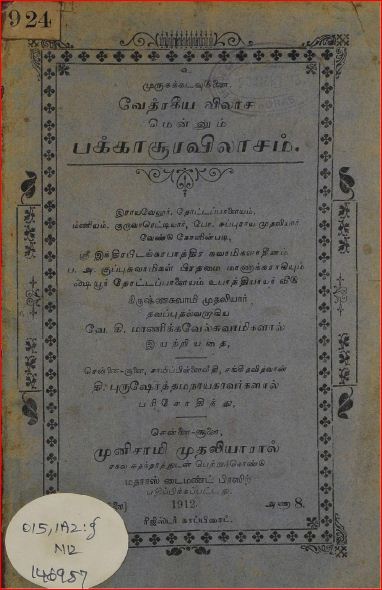 924
உ
முருகக்கடவுள் துணை.
வேதிரகிய விலாச
மென்னும்
பக்காசூரவிலாசம்.
இராயவேலூர், தோட்டப்பாளையம்,
மணியம், குருவாரெட்டியார், பே. சுப்பராய முதலியார்
வேண்டுகோளின்படி,
ஸ்ரீ இக்திரபீடக்கரபாத்திர சுவாமிகளாதீனம்
ப. அ. குப்புசுவாமிகள் பிரதமை மாணாக்கராகியும்
தோட்டப்பாளையம் உபாத்தியாயர் வீகி
கிருஷ்ணசுவாமி முதலியார்,
தவப்புதல்வராகிய
வே. கி. மாணிக்கவேல்சுவாமிகளால்
இயற்றியதை,
சென்னை-சூளை, சங்கீதவித்வான்
தி. புருஷோத்தமநாயகரவர்களால்
பரிசோதித்து,
சென்னை-சூளை,
முனிசாமி முதலியாரால்
சகல சுதந்தரத்துடன் பெற்றுக்கொண்டு
மதராஸ் டைமண்ட் பிரஸிற்
பதிப்பிக்கப்பட்டது.
1912. அணா 8.
ரிஜிஸ்டர் காப்பிரைட்.
015,1A2:g
N12
148957